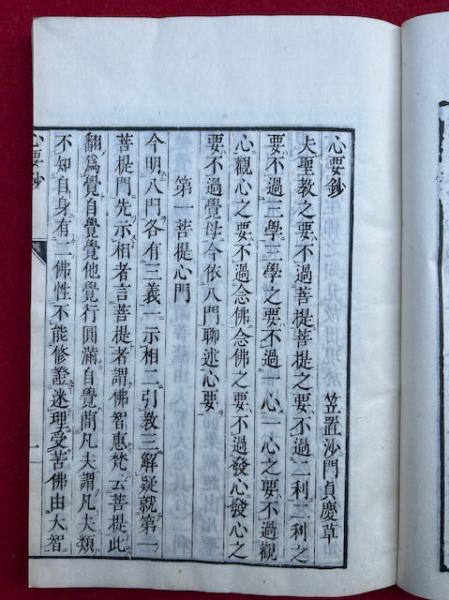 心要鈔
笠置沙門貞慶草
夫聖教之要不過菩提菩提之要不過二利二利之
要不過三學三學之要不過一心一心之要不過觀
心觀心之要不過念佛念佛之要不過發心發心之
要不過覺母今依八門聊述心要
第一菩提心門
今明八門各有三義一示相二引教三解疑就第一
菩提門先示相者言菩提者謂佛智惠梵云菩提此
翻爲覺自覺覺他覺行圓滿自覺蕳凡夫謂凡夫類
不知自身有二佛性不能修證迷理受苦佛由大智
心要鈔
一